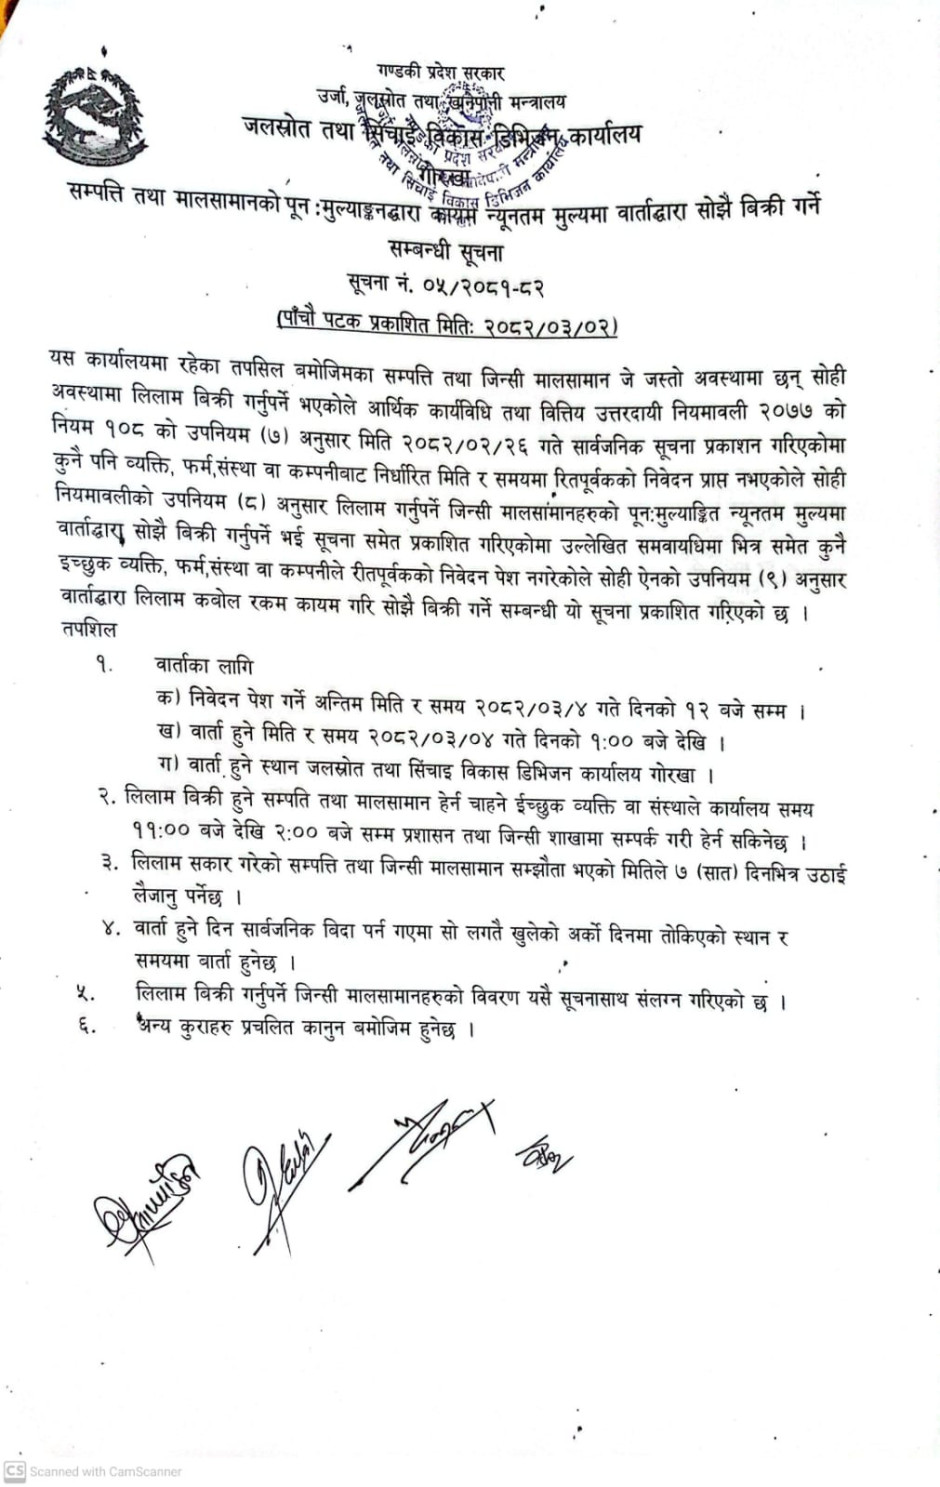 गण्डकी प्रदेश सरकार
उर्जा, जलस्रोत तथा खानेपानी मन्त्रालय
जलस्रोत तथा सिंचाई विकास डिभिजन कार्यालय
गोरखा
सम्पत्ति तथा मालसामानको पून :मुल्याङ्कनद्वारा कायम न्यूनतम मुल्यमा वार्ताद्वारा सोझै बिक्री गर्ने
सम्बन्धी सूचना
सूचना नं. ०५/२०८१-८२
(पाँचौ पटक प्रकाशित मितिः २०८२/०३/०२)
यस कार्यालयमा रहेका तपसिल बमोजिमका सम्पत्ति तथा जिन्सी मालसामान जे जस्तो अवस्थामा छन् सोही
अवस्थामा लिलाम बिक्री गर्नुपर्ने भएकोले आर्थिक कार्यविधि तथा वित्तिय उत्तरदायी नियमावली २०७७ को
नियम १०८ को उपनियम (७) अनुसार मिति २०८२/०२/२६ गते सार्वजनिक सूचना प्रकाशन गरिएकोमा
कुनै पनि व्यक्ति, फर्म,संस्था वा कम्पनीबाट निर्धारित मिति र समयमा रितपूर्वकको निवेदन प्राप्त नभएकोले सोही
नियमावलीको उपनियम (८) अनुसार लिलाम गर्नुपर्ने जिन्सी मालसामानहरुको पून:मुल्याङ्कित न्यूनतम मुल्यमा
वार्ताद्वारा सोझै बिक्री गर्नुपर्ने भई सूचना समेत प्रकाशित गरिएकोमा उल्लेखित समवायधिमा भित्र समेत कुनै
इच्छुक व्यक्ति, फर्म,संस्था वा कम्पनीले रीतपूर्वकको निवेदन पेश नगरेकोले सोही ऐनको उपनियम (९) अनुसार
वार्ताद्वारा लिलाम कबोल रकम कायम गरि सोझै बिक्री गर्ने सम्बन्धी यो सूचना प्रकाशित गरिएको छ ।
तपशिल
१. वार्ताका लागि
क) निवेदन पेश गर्ने अन्तिम मिति र समय २०८२/०३/४ गते दिनको १२ बजे सम्म ।
ख) वार्ता हुने मिति र समय २०८२/०३/०४ गते दिनको १:०० बजे देखि ।
ग) वार्ता हुने स्थान जलस्रोत तथा सिंचाइ विकास डिभिजन कार्यालय गोरखा ।
२. लिलाम बिक्री हुने सम्पति तथा मालसामान हेर्न चाहने ईच्छुक व्यक्ति वा संस्थाले कार्यालय समय
११:०० बजे देखि २:०० बजे सम्म प्रशासन तथा जिन्सी शाखामा सम्पर्क गरी हेर्न सकिनेछ ।
३. लिलाम सकार गरेको सम्पत्ति तथा जिन्सी मालसामान सम्झौता भएको मितिले ७ (सात) दिनभित्र उठाई
लैजानु पर्नेछ ।
४. वार्ता हुने दिन सार्वजनिक विदा पर्न गएमा सो लगतै खुलेको अर्को दिनमा तोकिएको स्थान र
समयमा वार्ता हुनेछ ।
५. लिलाम बिक्री गर्नुपर्ने जिन्सी मालसामानहरुको विवरण यसै सूचनासाथ संलग्न गरिएको छ ।
६. अन्य कुराहरु प्रचलित कानुन बमोजिम हुनेछ ।
CS Scanned with CamScanner